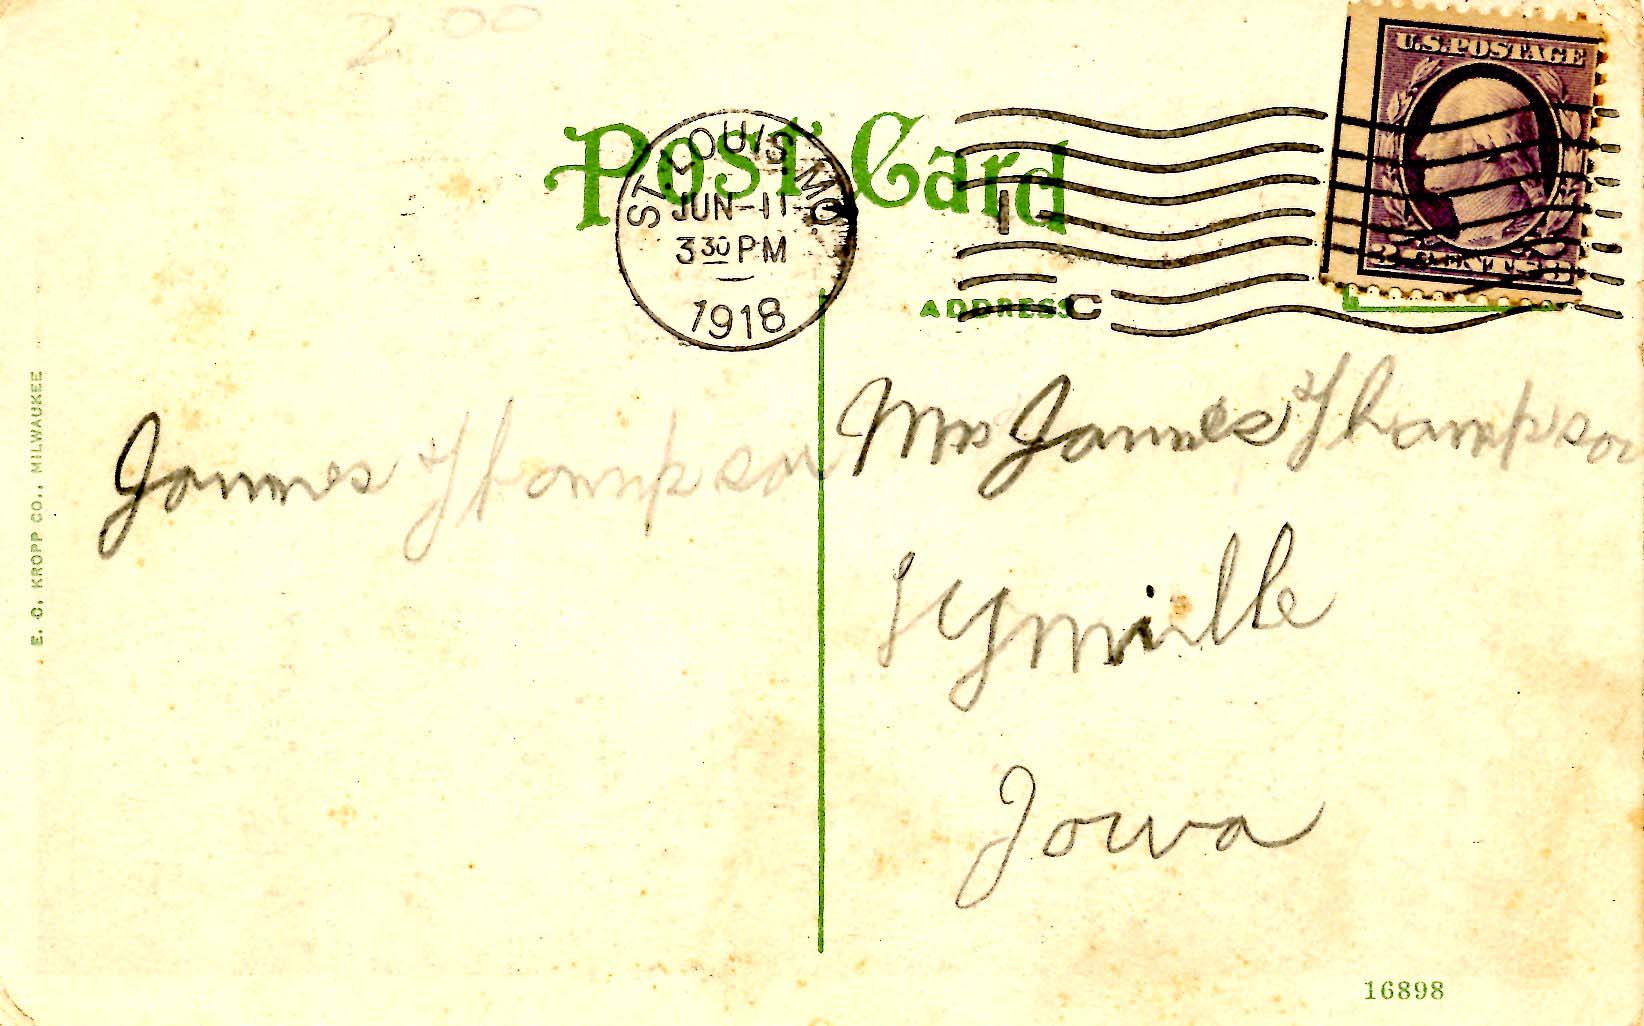 2.00
Post Card
ST. LOUIS, MO.
JUN-11
3 30 PM
1918
1
C
U.S. POSTAGE
ADDRESS
E. C. KROPP CO., MILWAUKEE
James Thompson
Mrs James Thompson
Lynnville
Iowa
16898